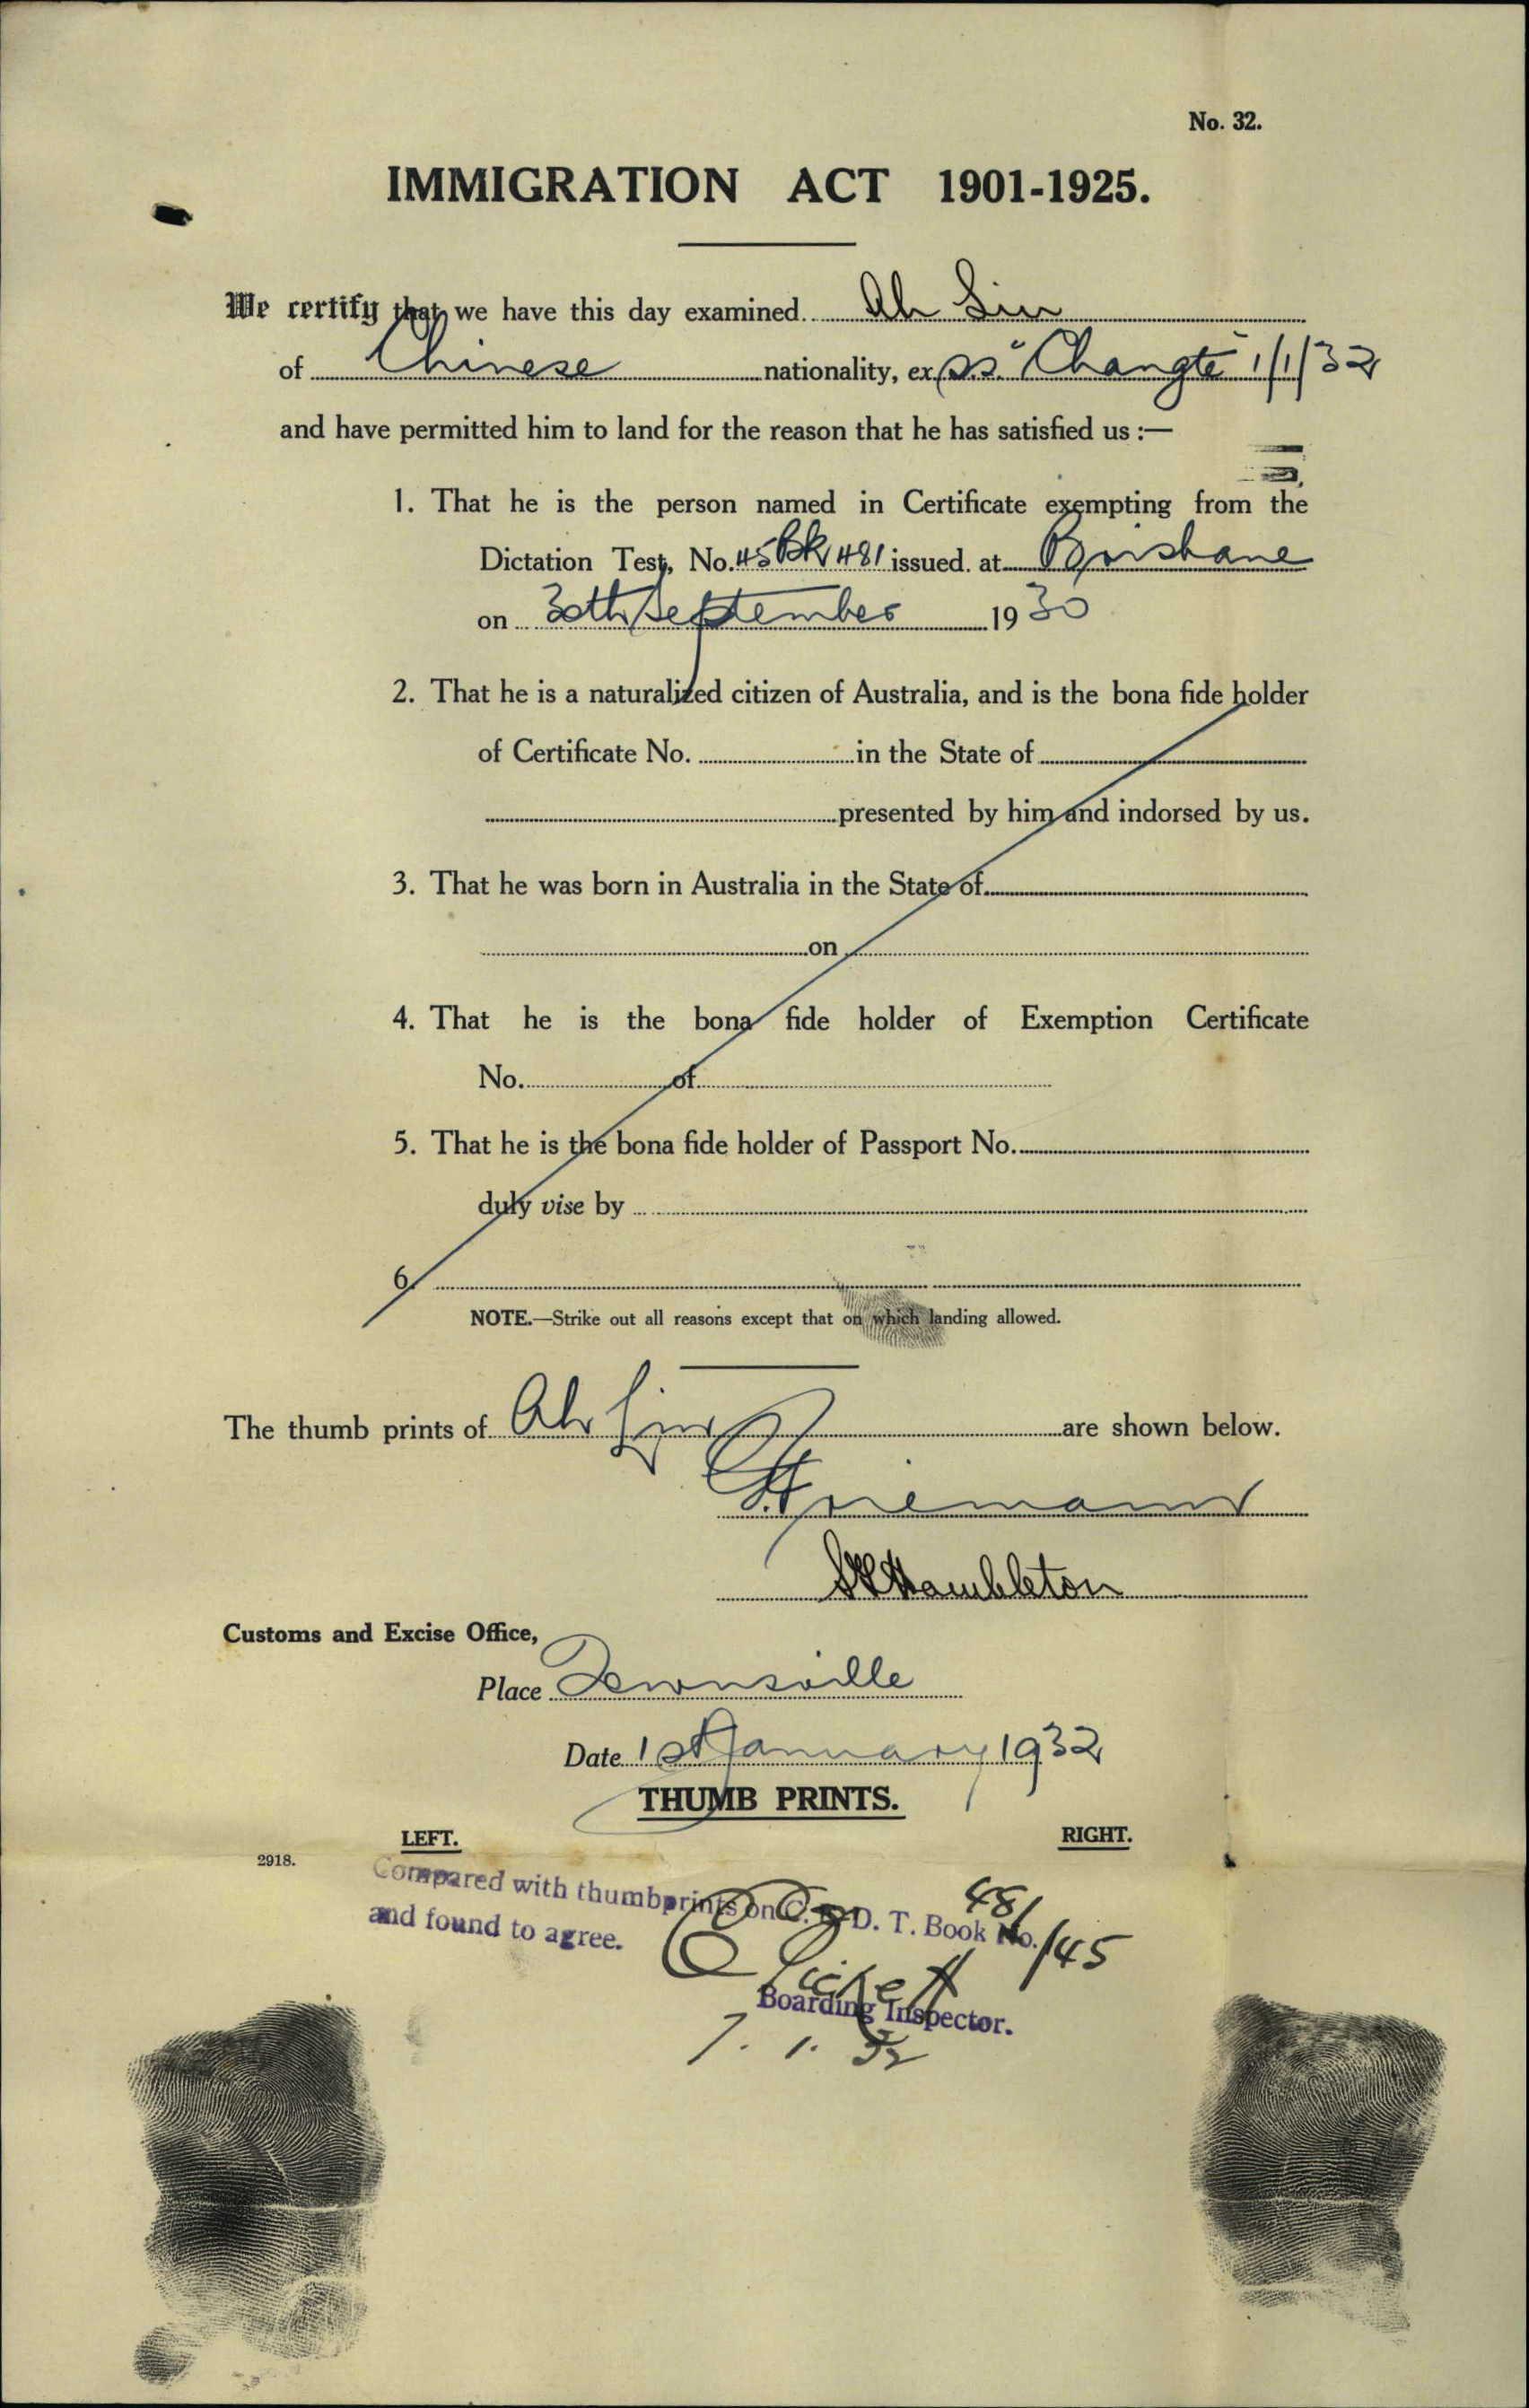 No. 32.
IMMIGRATION ACT 1901-1925.
We certify that we have this day examined Ah Sin
of Chinese nationality, ex s.s. "Changte" 1/1/32
and have permitted him to land for the reason that he has satisfied us :—
1. That he is the person named in Certificate exempting from the
Dictation Test, No. 45 Bk 481 issued at Brisbane
on 30th September 1930
2. That he is a naturalized citizen of Australia, and is the bona fide holder
of Certificate No. in the State of
presented by him and indorsed by us.
3. That he was born in Australia in the State of
on
4. That he is the bona fide holder of Exemption Certificate
No. of
5. That he is the bona fide holder of Passport No.
duly vise by
6.
NOTE.—Strike out all reasons except that on which landing allowed.
The thumb prints of Ah Sin are shown below.
Hambleton
Customs and Excise Office,
Place Townsville
Date 1st January 1932
THUMB PRINTS.
LEFT. RIGHT.
2918.
Compared with thumbprints on C. E. D. T. Book No. 481/145
and found to agree.
Boarding Inspector.
7. 1. 32